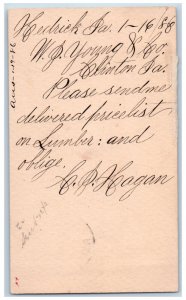 Hedrick Ia. 1-16/86
W. J. Young & Co.
Clinton Ia.
Please send me
delivered pricelist
on Lumber: and
oblige.
C. P. Hagan